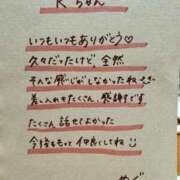 Kちゃん
いつもいつもありがとう♡
久々だったけど、全然
そんな感じがしなかったね
差し入れもたくさん、感謝です
たくさん話せてよかった
今後ももっと仲良くしてね